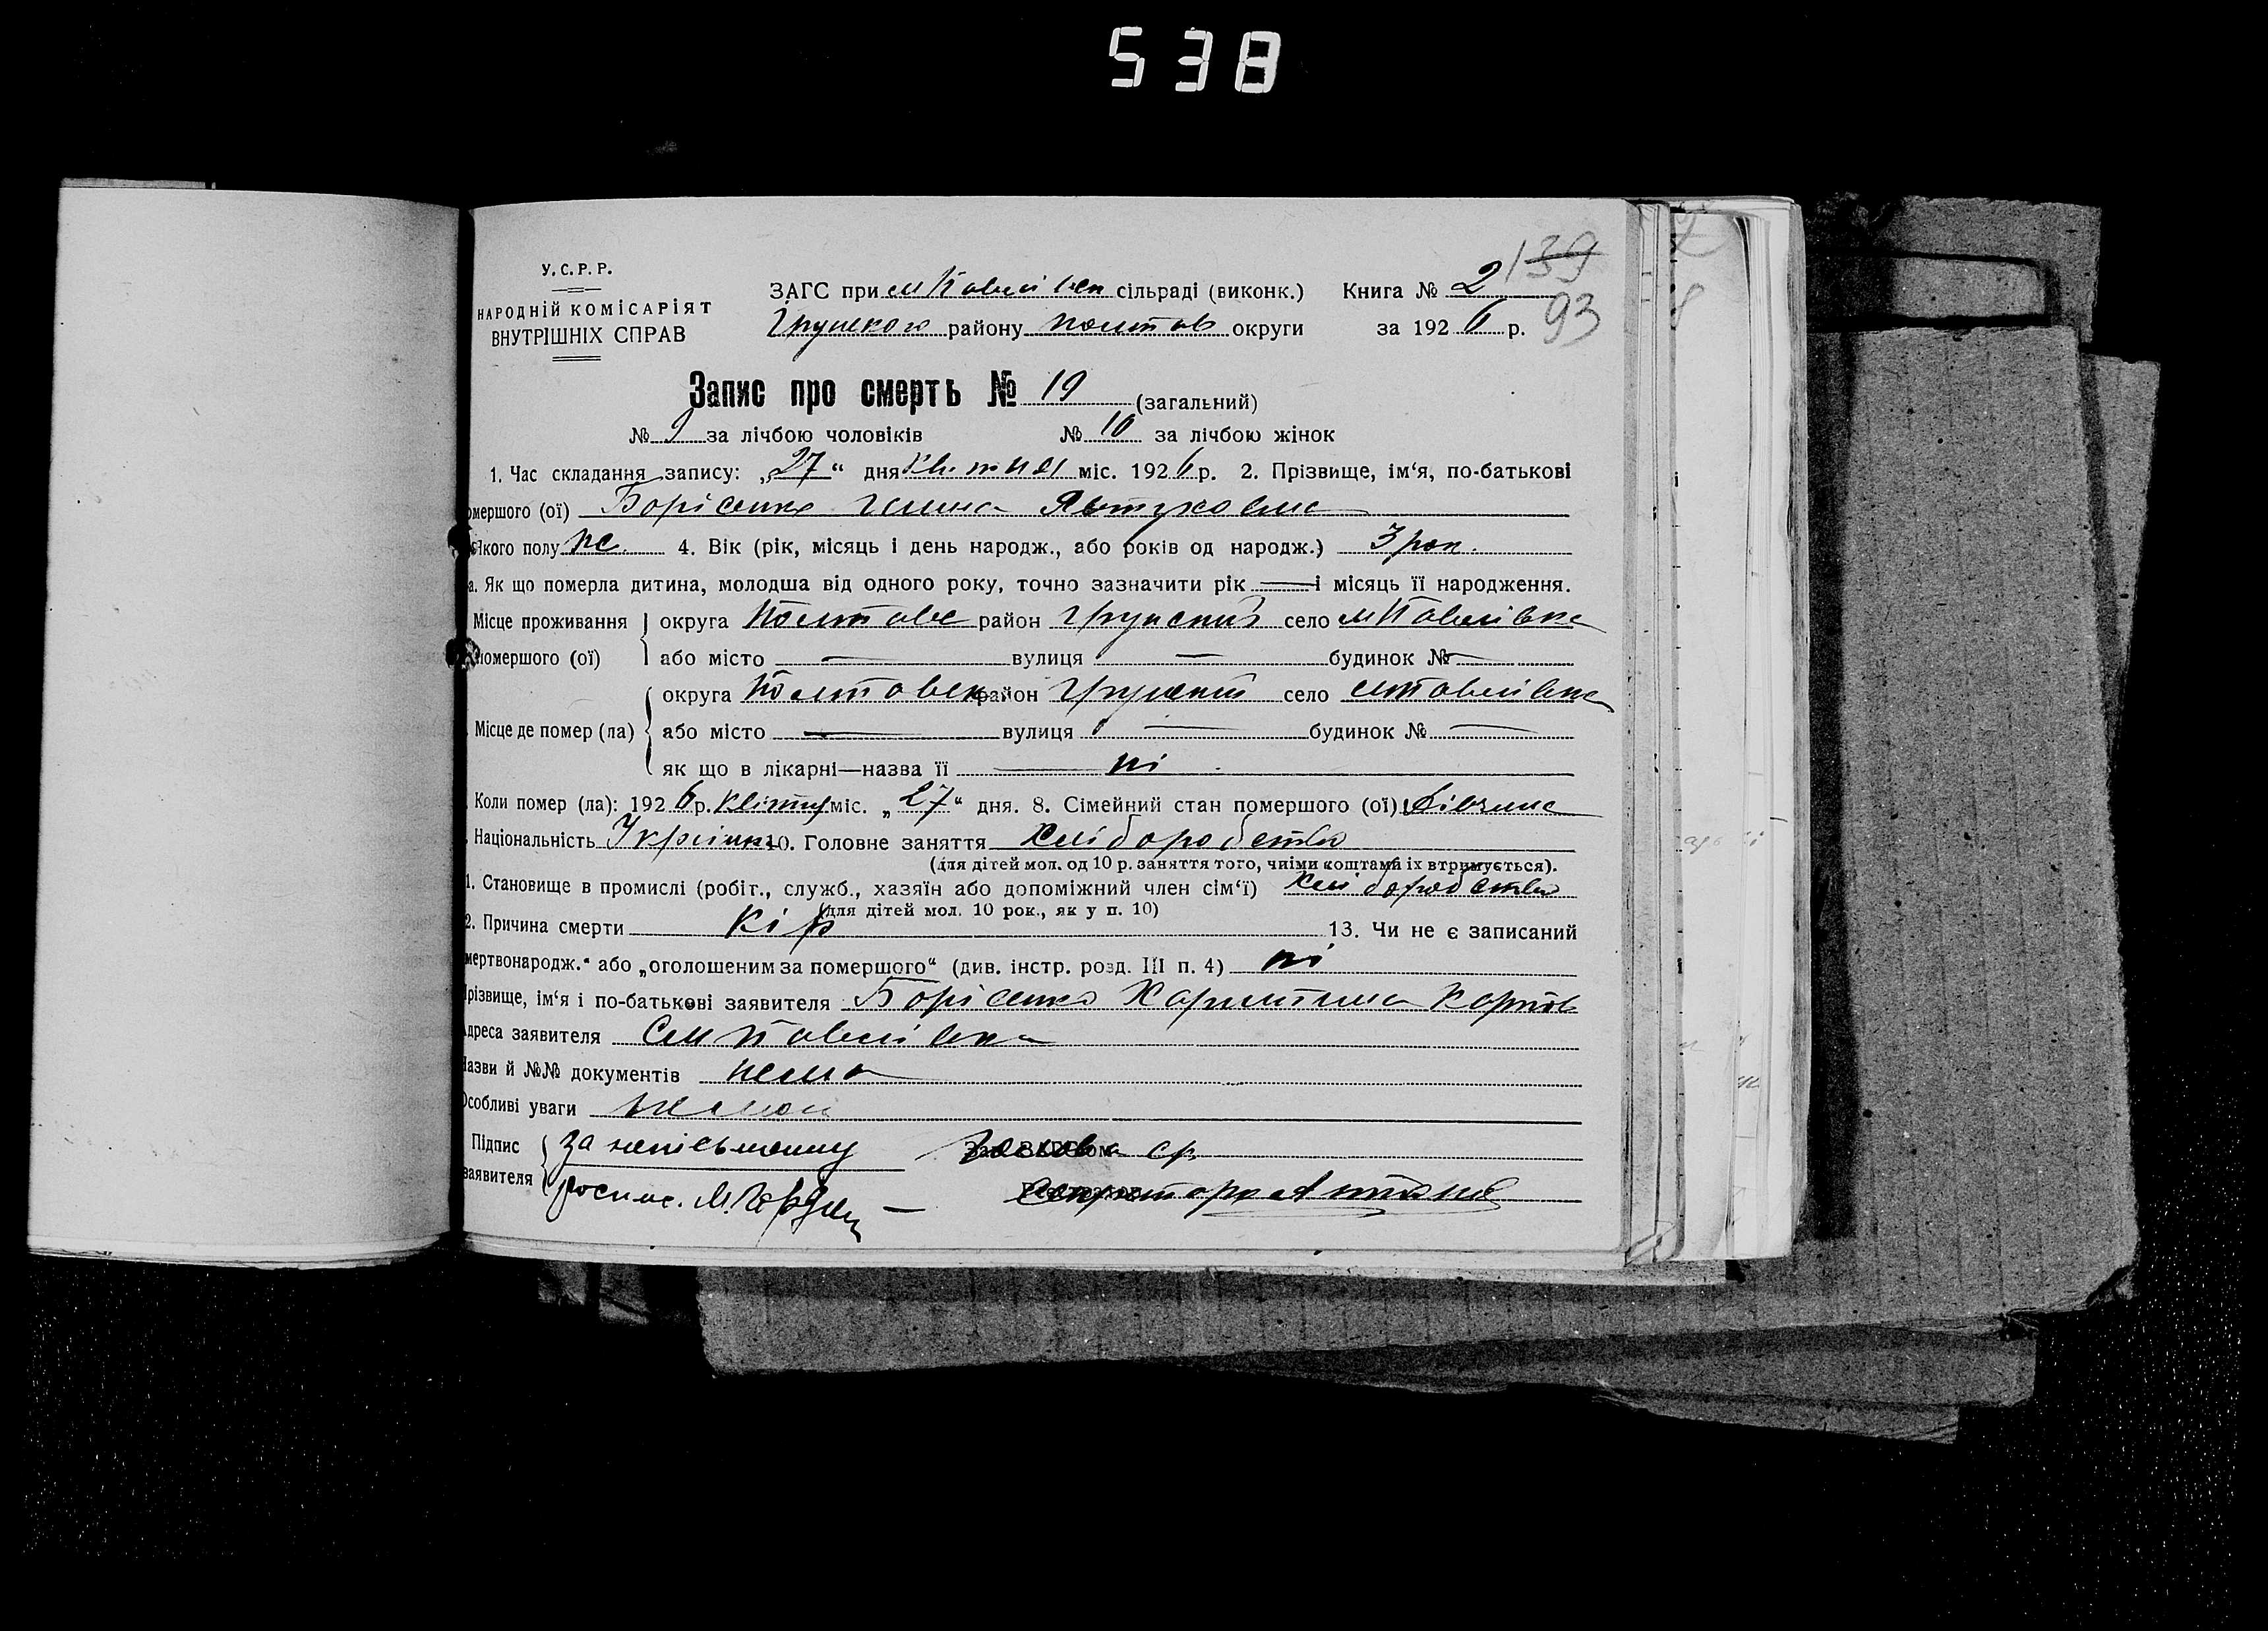 538
139
93
У.С.Р.Р.
НАРОДНІЙ КОМІСАРІЯТ
ВНУТРІШНІХ СПРАВ
ЗАГС при м Павлівськ сільраді (виконк.) Книга № 2
Грунського району полтав округи за 1926 р.
Запис про смерть № 19 (загальний)
№ 9 за лічбою чоловіків № 10 за лічбою жінок
1. Час складання запису: „27“ дня квітня міс. 1926 р. 2. Прізвище, ім‘я, по-батькові
омершого (ої) Борісенко Явтуховна
Якого полу ж. 4. Вік (рік, місяць і день народж., або років од народж.) 3 рок.
а. Як що померла дитина, молодша від одного року, точно зазначити рік — і місяць її народження.
Місце проживання округа Полтавс район Грунський село мПавлівка
помершого (ої) або місто — вулиця — будинок № —
округа Полтавськ район Грунський село мПавлівка
Місце де помер (ла) або місто — вулиця — будинок № —
як що в лікарні—назва її — ні
Коли помер (ла): 1926 р. квітня міс. „27“ дня. 8. Сімейний стан помершого (ої) Дівчина
Національність Українка 10. Головне заняття Хліборобство
(для дітей мол. од 10 р. заняття того, чиїми коштами іх втримується).
1. Становище в промислі (робіт., служб., хазяїн або допоміжний член сім‘ї) Хліборобство
(для дітей мол. 10 рок., як у п. 10)
2. Причина смерти Кір 13. Чи не є записаний
мертвонародж.“ або „оголошеним за помершого“ (див. інстр. розд. III п. 4) ні
Прізвище, ім‘я і по-батькові заявителя Борісенко Харитина Карпов
Адреса заявителя См Павлівка
Назви й №№ документів нема
Особливі уваги немає
Підпис за непісьменну Голова ср
заявителя роспис. Секретар